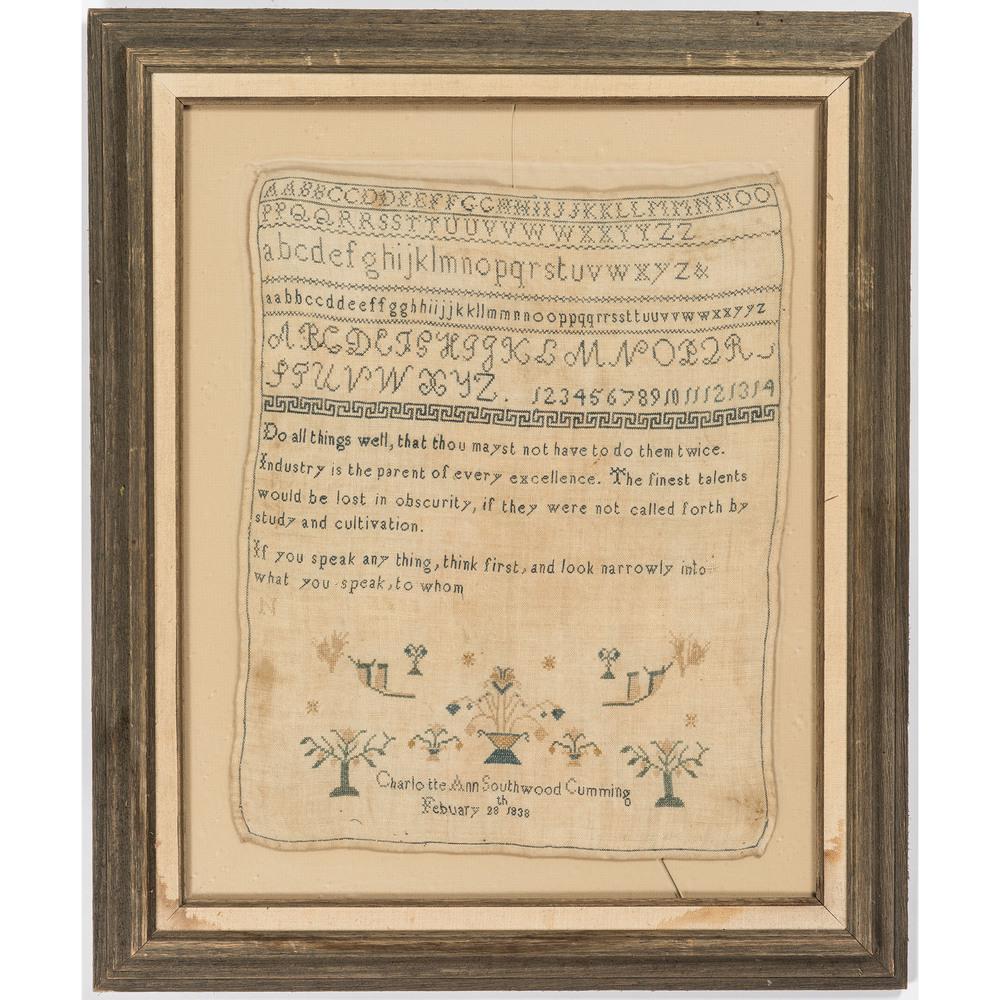 AABBCCDDEEFFGGHHIIJJKKLLMMNNOO
PPQQRRSSTTUUVVWWXXYYZZ
abcdefghijklmnopqrstuvwxyz&
aabbccddeeffgghhiijjkkllmmnnooppqqrrssttuuvvwwxxyyz
ABCDEFGHIJKLMNOPQR
STUVWXYZ. 1234567891011121314
Do all things well, that thou mayst not have to do them twice.
Industry is the parent of every excellence. The finest talents
would be lost in obscurity, if they were not called forth by
study and cultivation.
If you speak any thing, think first, and look narrowly into
what you speak, to whom
N
Charlotte Ann Southwood Cumming
Febuary 28th 1838